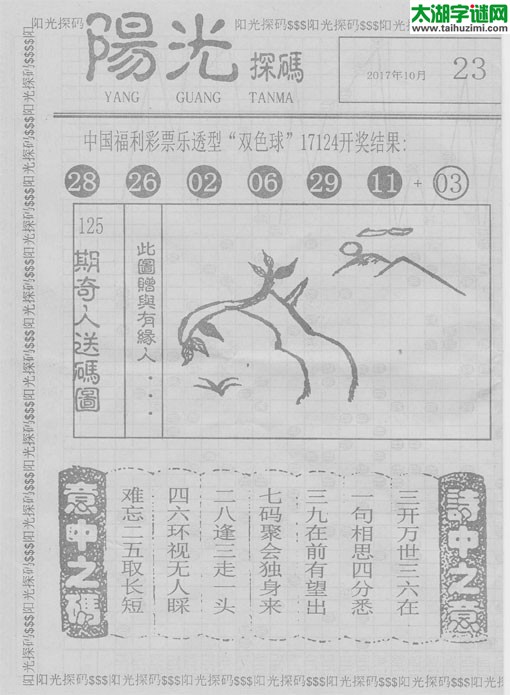 太湖字谜网
www.taihuzimi.com
阳光探码$$$阳光探码$$$阳光探码$$$阳光探码
陽光探碼
YANG GUANG TANMA
2017年10月 23
中国福利彩票乐透型“双色球”17124开奖结果:
28 26 02 06 29 11 + 03
125
期奇人送碼圖
此圖贈與有緣人....
詩中之意
三开万世三六在
一句相思四分悉
三九在前有望出
七码聚会独身来
二八逢三走一头
四六环视无人睬
难忘二五取长短
意中之碼
阳光探码$$$阳光探码$$$阳光探码$$$阳光探码$$$阳光探码$$$阳光探码
阳光探码$$$阳光探码$$$阳光探码$$$阳光探码